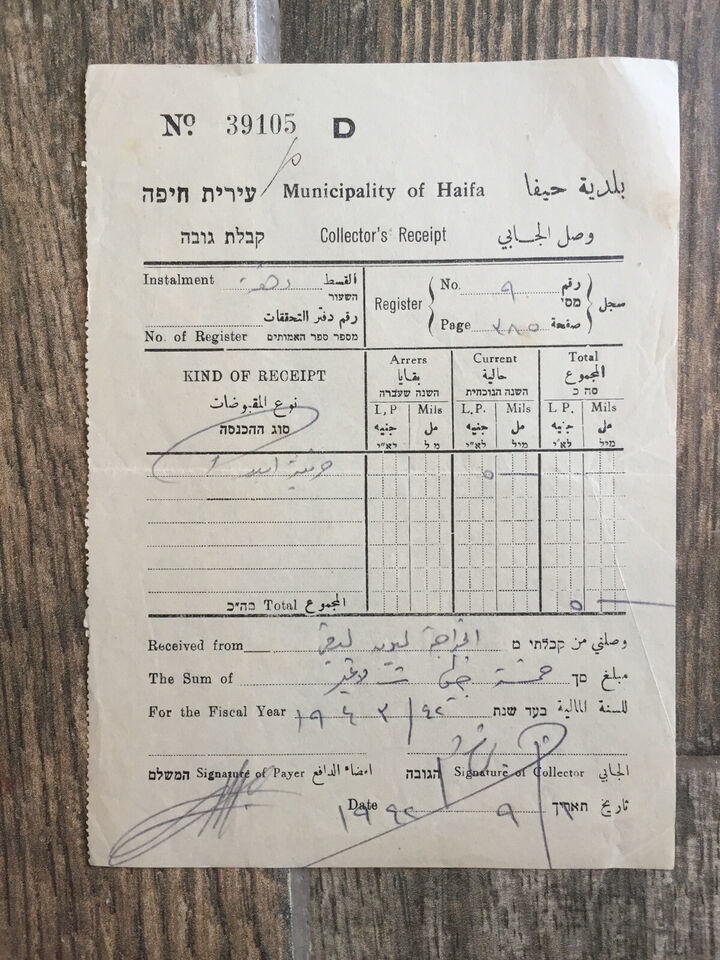 Nº 39105 D
עירית חיפה Municipality of Haifa بلدية حيفا
קבלת גובה Collector's Receipt وصل الجابي
Instalment دفعة القسط
השעור
رقم دفتر التحققات
No. of Register מספר ספר האמותים
Register No. ٩ رقم מס׳ سجل
Page ٣٨٥ صفحة
KIND OF RECEIPT
نوع المقبوضات
סוג ההכנסה
Arrers Current Total
بقايا حالية المجموع
השנה שעברה השנה הנוכחית סה כ
L.P Mils L.P. Mils L P. Mils
جنيه مل جنيه مل جنيه مل
לא״י מ ל לא״י מיל לא״י מיל
٥ —
סה״כ Total المجموع ٥ —
Received from الخواجة ليون وصلني من קבלתי מ
The Sum of خمسة مبلغ סך
For the Fiscal Year للسنة المالية בעד שנת
המשלם Signature of Payer امضاء الدافع הגובה Signature of Collector الجابي
Date תאריך تاريخ